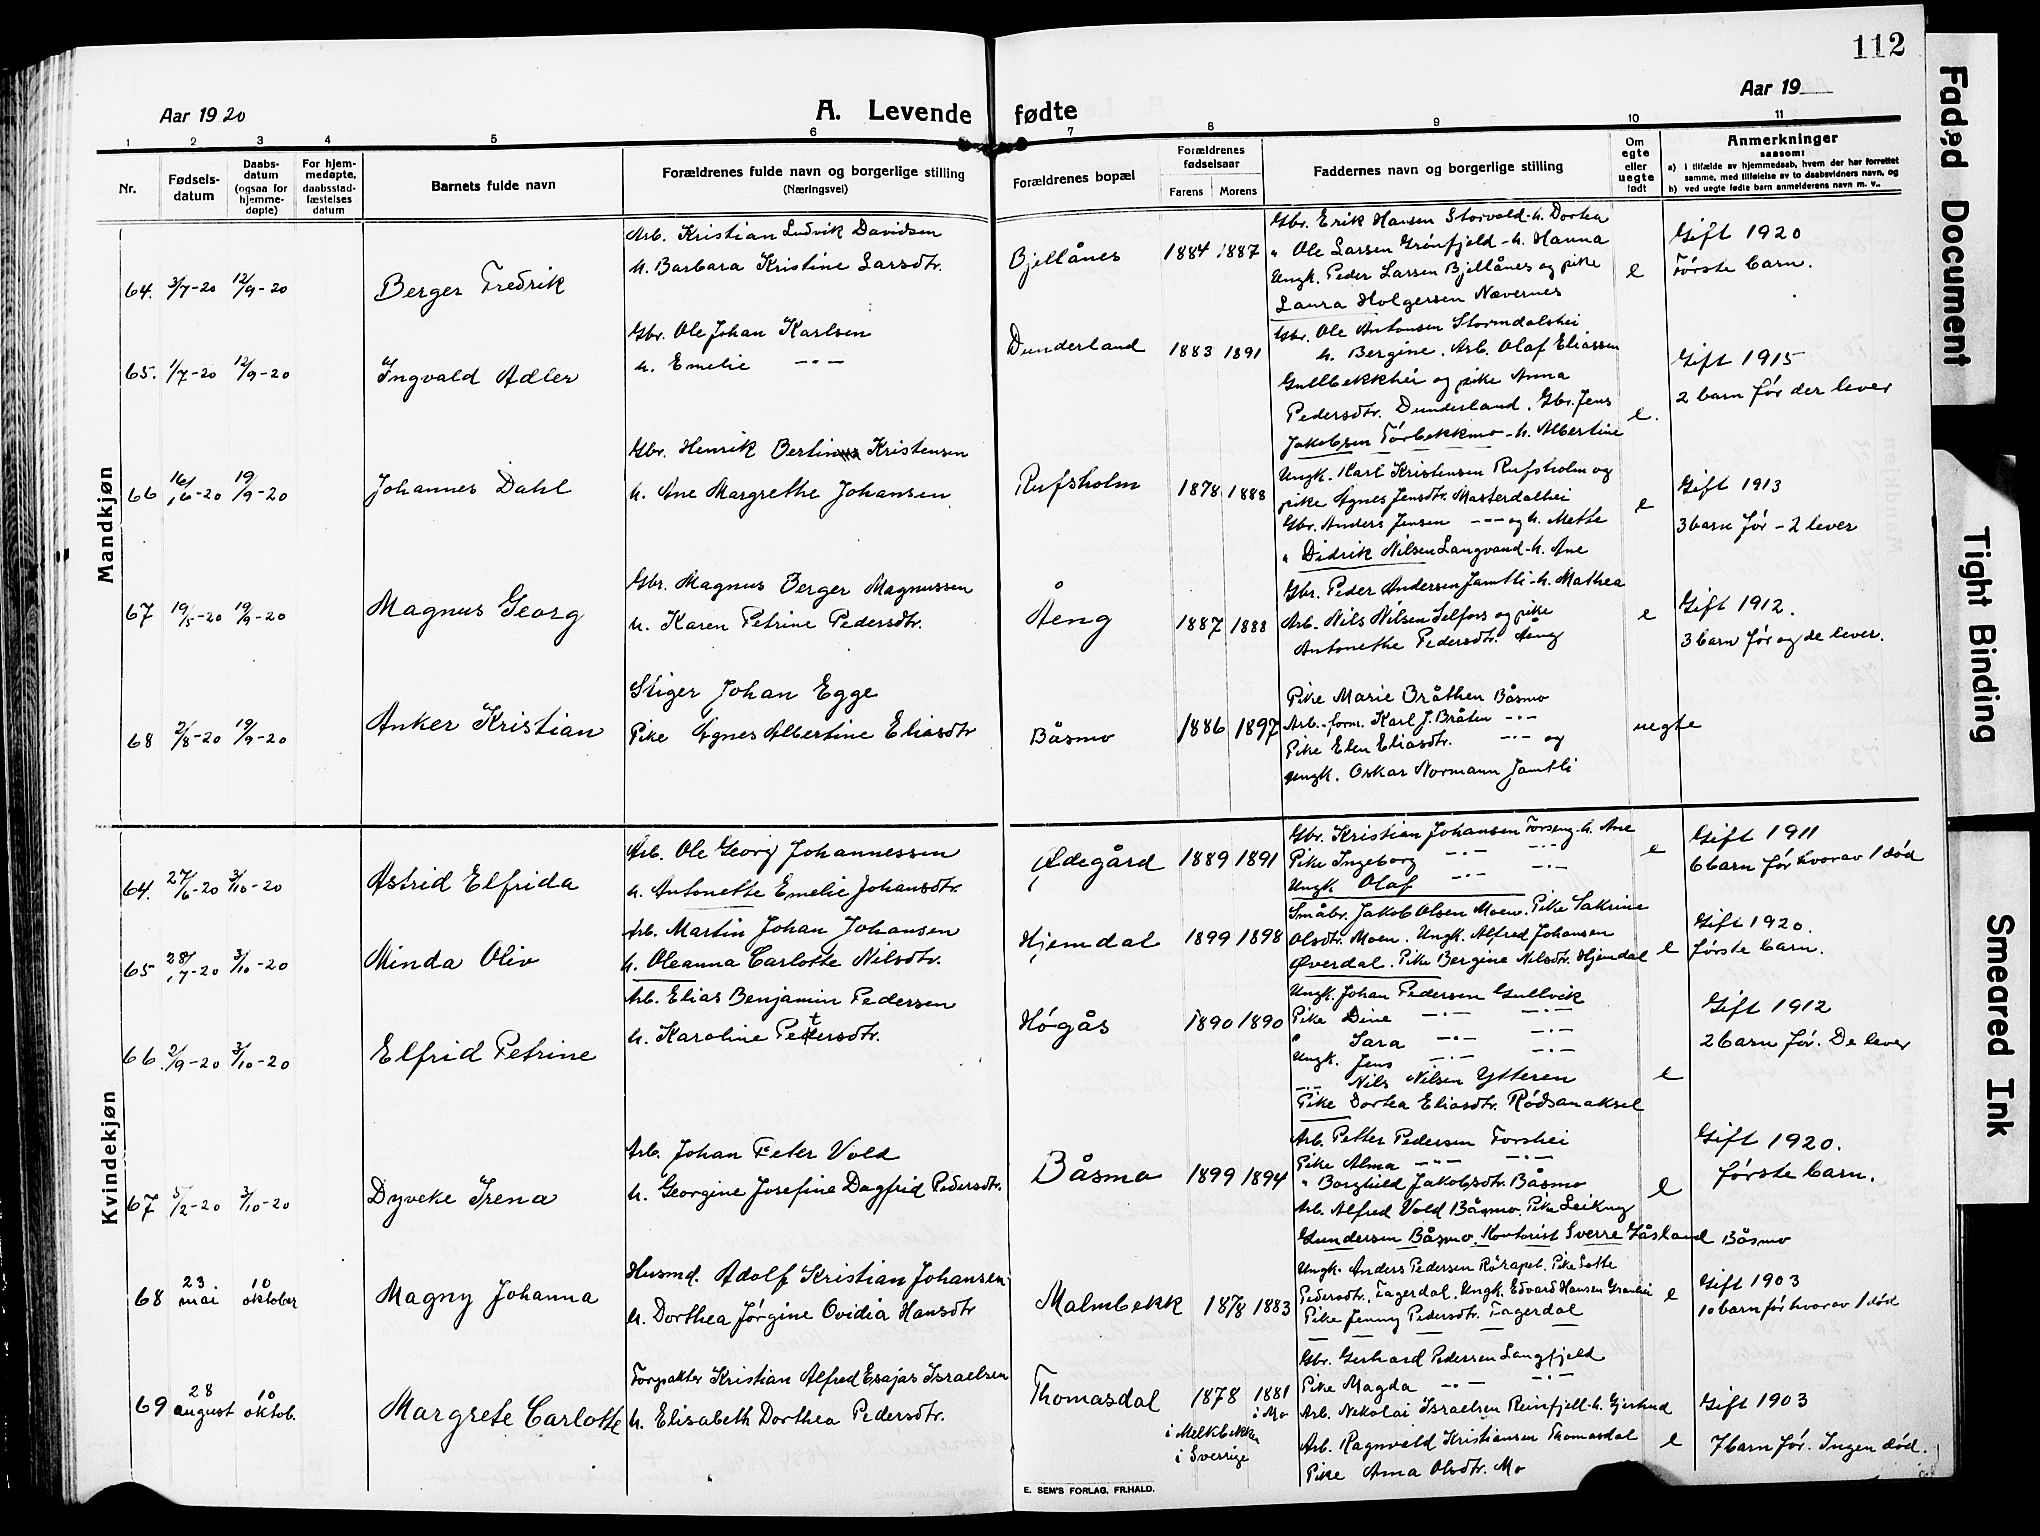 112
Aar 1920
A. Levende fødte
Aar 19
1 2 3 4 5 6 7 8 9 10 11
Nr.
Fødsels-datum
Daabs-datum (ogsaa for hjemme-døpte)
For hjem-medøpte, daabsstad-fæstelses datum
Barnets fulde navn
Forældrenes fulde navn og borgerlige stilling (Næringsvei)
Forældrenes bopæl
Forældrenes fødselsaar
Farens Morens
Faddernes navn og borgerlige stilling
Om egte eller uegte født
Anmerkninger
saasom:
a) i tilfælde av hjemmedaab, hvem der har forrettet samme, med tilføielse av to daabsvidners navn, og
b) ved uegte fødte barn anmelderens navn m. v..
Mandkjøn
64. 3/7-20 12/9-20 Berger Fredrik
Arb. Kristian Ludvik Davidsen
h. Barbara Kristine Larsdtr.
Bjellånes 1884 1887
Gbr. Erik Hansen Storvold-h. Dortea
" Ole Larsen Grønfjeld-h. Hanna
Ungk. Peder Larsen Bjellånes og pike
Laura Holgersen Nævernes
e
Gift 1920
Første barn.
65. 1/7-20 12/9-20 Ingvald Adler
Gbr. Ole Johan Karlsen
h. Emelie -"-
Dunderland 1883 1891
Gbr. Ole Antonsen Stormdalshei
h. Bergine. Arb. Olaf Eliassen
Gullbekkhei og pike Anna
Pedersdtr. Dunderland. Gbr. Jens
Jakobsen Tørbekkmo-h. Albertine
e.
Gift 1915
2 barn før der lever
66 16/6-20 19/9-20 Johannes Dahl
Gbr. Henrik Bertin Kristensen
h. Ane Margrethe Johansen
Rufsholm 1878 1888
Ungk. Karl Kristensen Rufsholm og
pike Agnes Jensdtr. Masterdalhei
Gbr. Anders Jensen -"- og h. Mette
" Didrik Nilsen Langvand-h. Ane
e
Gift 1913
3 barn før - 2 lever
67 19/5-20 19/9-20 Magnus Georg
Gbr. Magnus Berger Magnussen
h. Karen Petrine Pedersdtr.
Åeng 1887 1888
Gbr. Peder Andersen Jamtli-h. Mathea
Arb. Nils Nilsen Selfors og pike
Antonethe Pedersdtr. Åeng
e
Gift 1912.
3 barn før og de lever.
68 2/8-20 19/9-20 Anker Kristian
Stiger Johan Egge
Pike Agnes Albertine Eliasdtr
Båsmo 1886 1897
Pike Marie Bråthen Båsmo
Arb.-form. Karl J. Bråten -"-
Pike Elen Eliasdtr. -"- og
Ungk. Oskar Normann Jamtli
uegte
Kvindekjøn
64. 27/6-20 3/10-20 Astrid Elfrida
Arb. Ole Georg Johannessen
h. Antonette Emelie Johansdtr.
Ødegård 1889 1891
Gbr. Kristian Johansen Forseng-h. Ane
Pike Ingeborg -"- -"-
Ungk Olaf -"- -"-
e
Gift 1911
6 barn før hvorav 1 død
65 28/7-20 3/10-20 Minda Oliv
Arb. Martin Johan Johansen
h. Oleanna Carlotte Nilsdtr.
Hjemdal 1899 1898
Småbr. Jakob Olsen Moen. Pike Sakrine
Olsdtr. Moen. Ungk. Alfred Johansen
Øverdal. Pike Bergine Nilsdtr. Hjemdal
e
Gift 1920.
første barn.
66. 2/9-20 3/10-20 Elfrid Petrine
Arb. Elias Benjamin Pedersen
h. Karoline Petersdtr.
Høgås 1890 1890
Ungk. Johan Pedersen Gullvik
Pike Dine -"- -"-
" Sara -"- -"-
Ungk. Jens -"- -"-
-"- Nils Nilsen Ytteren
Pike Dortea Eliasdtr. Rödsanaksel
e
Gift 1912
2 barn før. De lever
67 5/2-20 3/10-20 Dyveke Irena
Arb. Johan Peter Vold
h. Georgine Josefine Dagfrid Pedersdtr.
Båsmo 1899 1894
Arb. Petter Pedersen Forshei
Pike Alma -"- -"-
" Borghild Jakobsdtr. Båsmo
Arb. Alfred Vold Båsmo. Pike Leikny
Gundersen Båsmo. Kontorist Sverre Gåsland Båsmo
e
Gift 1920.
første barn.
68 23 mai 10 oktober Magny Johanna
Husmd. Adolf Kristian Johansen
h. Dorthea Jørgine Ovidia Hansdtr
Malmbekk 1878 1883
Ungk. Anders Pedersen Rørapel. Pike Lotte
Pedersdtr. Fagerdal. Ungk. Edvard Hansen Granhei
Pike Jenny Pedersdtr. Fagerdal
e
Gift 1903
10 barn før hvorav 1 død
69 28 august 10 oktob. Margrete Carlotte
Forpakter Kristian Alfred Esajas Israelsen
h. Elisabeth Dorthea Pedersdtr.
Thomasdal 1878 1881
i Mo
i Melkbekken
i Sverrige
Gbr. Gerhard Pedersen Langfjeld
Pike Magda -"- -"-
Arb. Nikolai Israelsen Reinfjell-h. Gjertrud
Arb. Ragnvald Kristiansen Thomasdal
Pike Anna Olsdtr. Mo
e
Gift 1903
7 barn før. Ingen død.
E. SEM'S FORLAG, FR.HALD.
Faded Document
Tight Binding
Smeared Ink